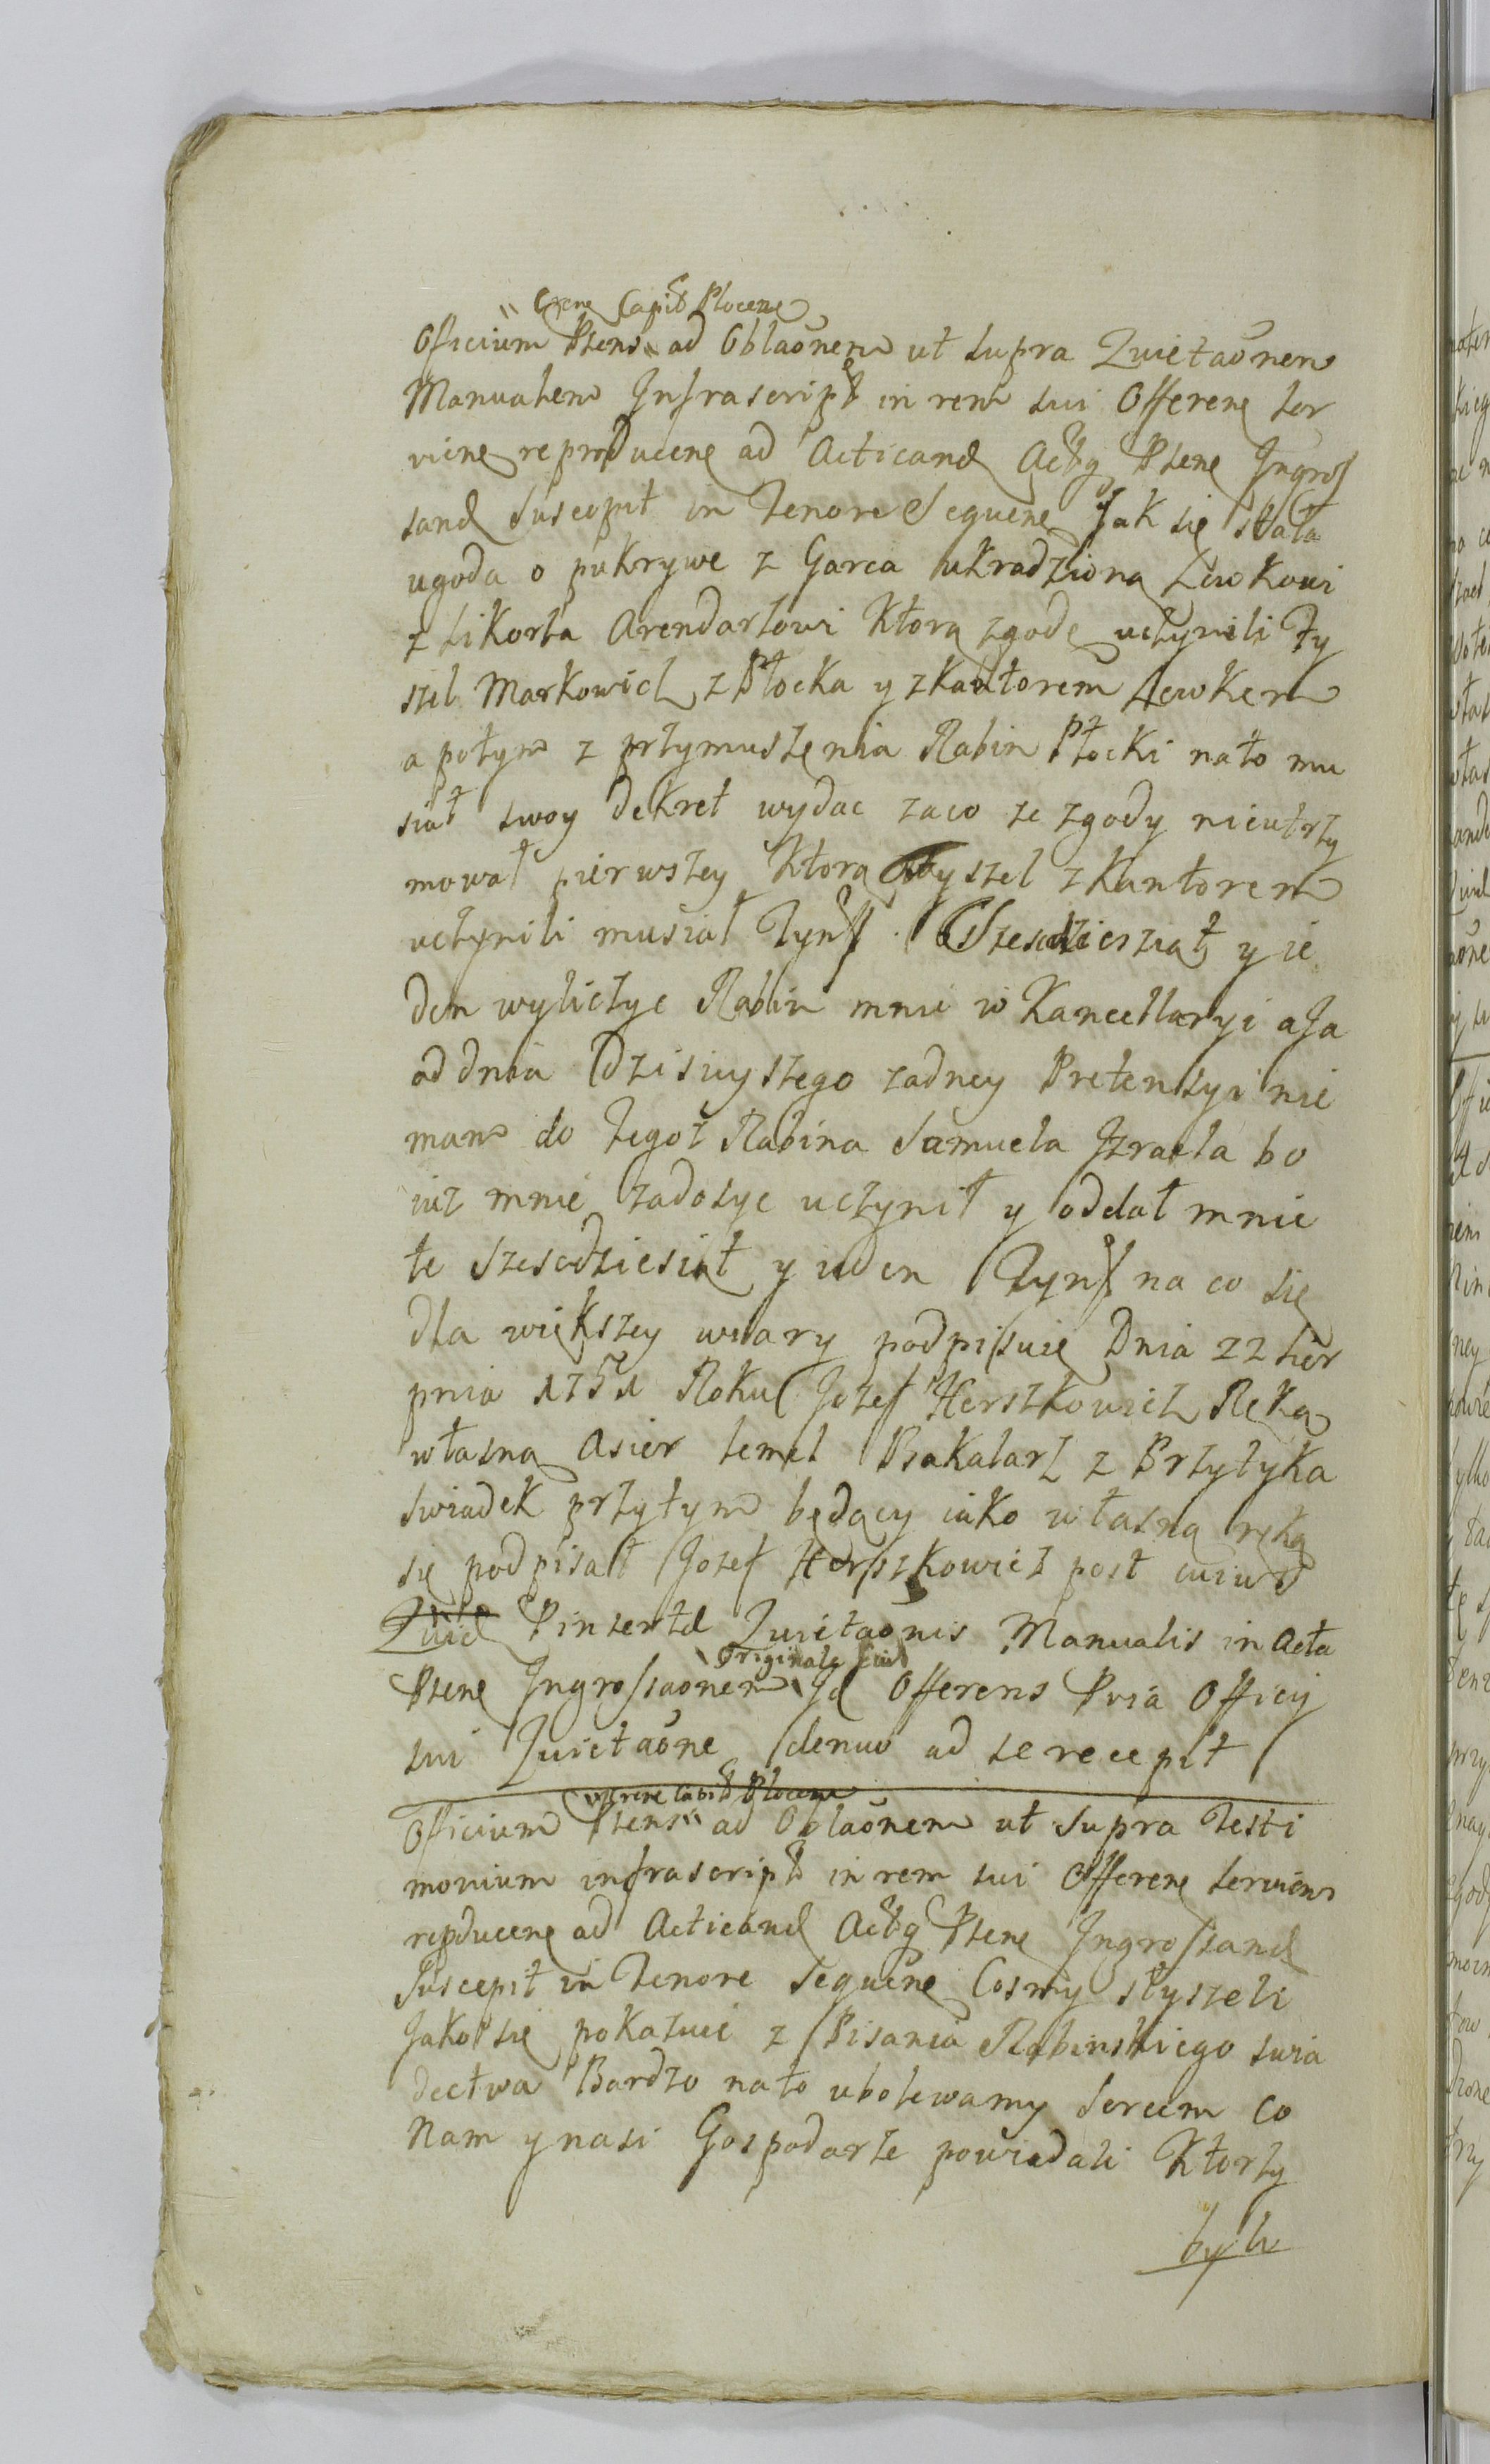 Crens Capit Plocens
Officium Psens ad Oblaonem ut supra Quietaonem
Manualem Infrascript in rem sui Offerens ser
viens reproducens ad Acticand Actq Psens Ingros
sand Suscepit in Tenore Sequens Jak się stała
ugoda o pukrywe z Garca ukradziona Lewkowi
z Likorza Arendarzowi Ktorą zgodę uczynili Ty
szel Markowicz z Płocka y z kantorem Lewkem
a potym z przymuszenia Rabin Płocki nato mu
siał swoy dekret wydac zaco ze zgody nieutrzy
mował pierwszey Ktorą Tyszel z kantorem
uczynili musiał Tynff Szescdziesiąt y ie
den wyliczyc Rabin mnie w Kancellaryi a Ja
od dnia dzisieyszego zadney Pretensyi nie
mam do tegoż Rabina Samuela Izraela bo
iuz mnie zadosyc uczynił y oddał mnie
te Szescdziesiąt y ieden Tynff na co się
dla większey wiary podpisuię Dnia 22 Sier
pnia 1751 Roku Jozef Herszkowicz Ręką
własną Asier Lemel Bakalarz z Przytyka
swiadek przytym będący iako własną ręką
się podpisał Jozef Herszkowicz post cuius
Quiet Pinsertd Quietaonis Manualis in Acta
Originale eius
Psens Ingrossaonem Id Offerens Pria Officij
sui Quietaone denuo ad se recepit
Crens Capit Plocens
Officium Psens ad Oblaonem ut Supra Testi
monium infrascript in rem sui Offerens serviens
repducens ad Acticand Actq Psens Ingrossand
Suscepit in Tenore Sequens Cosmy słyszeli
Jako się pokazuie z Pisania Rabinskiego swia
dectwa Bardzo nato ubolewamy Sercem Co
Nam y nasi Gospodarze powiedali Ktorzy
byli